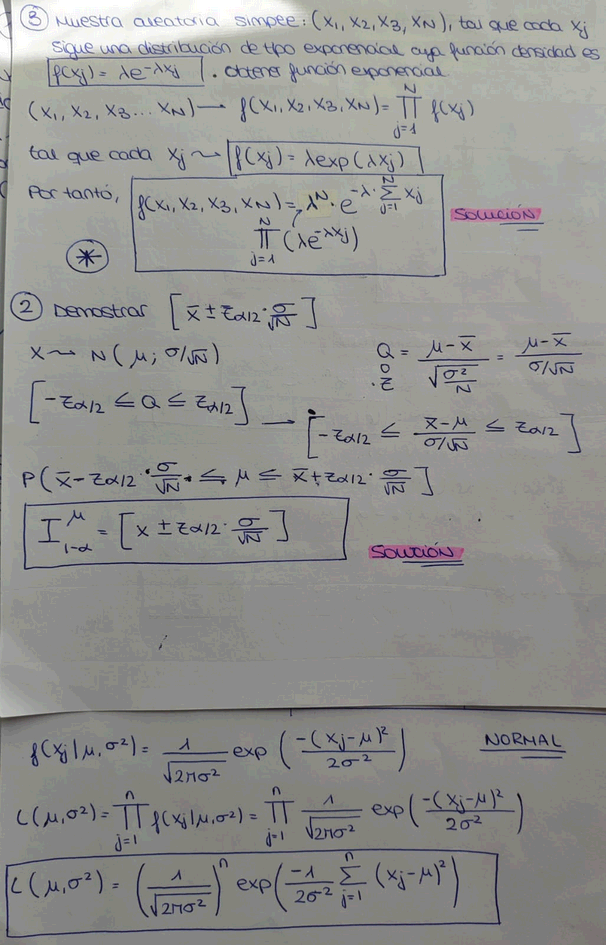 ③ Muestra aleatoria simple: (x₁, x₂, x₃, x_N), tal que cada xj
sigue una distribución de tipo exponencial cuya función densidad es
f(xj) = λe^(-λxj) . Obtener función exponencial
(x₁, x₂, x₃... x_N) → f(x₁, x₂, x₃, x_N) = ∏_{j=1}^{N} f(xj)
tal que cada xj ~ f(xj) = λexp(λxj)
Por tanto, f(x₁, x₂, x₃, x_N) = λ^N · e^(-λ · ∑_{j=1}^{N} xj)
∏_{j=1}^{N} (λe^(-λxj))
SOLUCIÓN
*
② Demostrar [x̄ ± z_{α/2} · σ/√N]
x ~ N(μ; σ/√N)
Q = (μ - x̄)/√(σ²/N) = (μ - x̄)/(σ/√N)
o
z
[-z_{α/2} ≤ Q ≤ z_{α/2}] → [-z_{α/2} ≤ (x̄ - μ)/(σ/√N) ≤ z_{α/2}]
P(x̄ - z_{α/2} · σ/√N ≤ μ ≤ x̄ + z_{α/2} · σ/√N]
I^μ_{1-α} = [x ± z_{α/2} · σ/√N]
SOLUCIÓN
f(xj|μ, σ²) = 1/√(2πσ²) exp(-(xj-μ)²/2σ²) NORMAL
L(μ, σ²) = ∏_{j=1}^{n} f(xj|μ, σ²) = ∏_{j=1}^{n} 1/√(2πσ²) exp(-(xj-μ)²/2σ²)
L(μ, σ²) = (1/√(2πσ²))^n exp(-1/2σ² ∑_{j=1}^{n} (xj-μ)²)